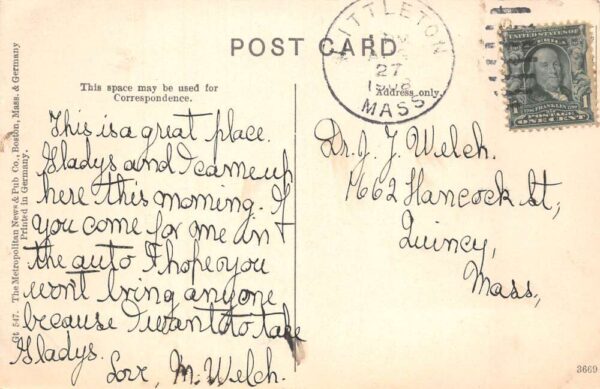 POST CARD
This space may be used for
Correspondence.
Address only.
LITTLETON
27
1908
MASS
UNITED STATES OF
AMERICA
FRANKLIN
POSTAGE
ONE CENT
1
This is a great place.
Gladys and I came up
here this morning. If
you come for me in
the auto I hope you
won't bring anyone
because I want to take
Gladys.
Love, M. Welch.
Dr. J. J. Welch.
1662 Hancock St,
Quincy,
Mass,
Gt 547. The Metropolitan News & Pub Co., Boston, Mass. & Germany
Printed in Germany.
3669